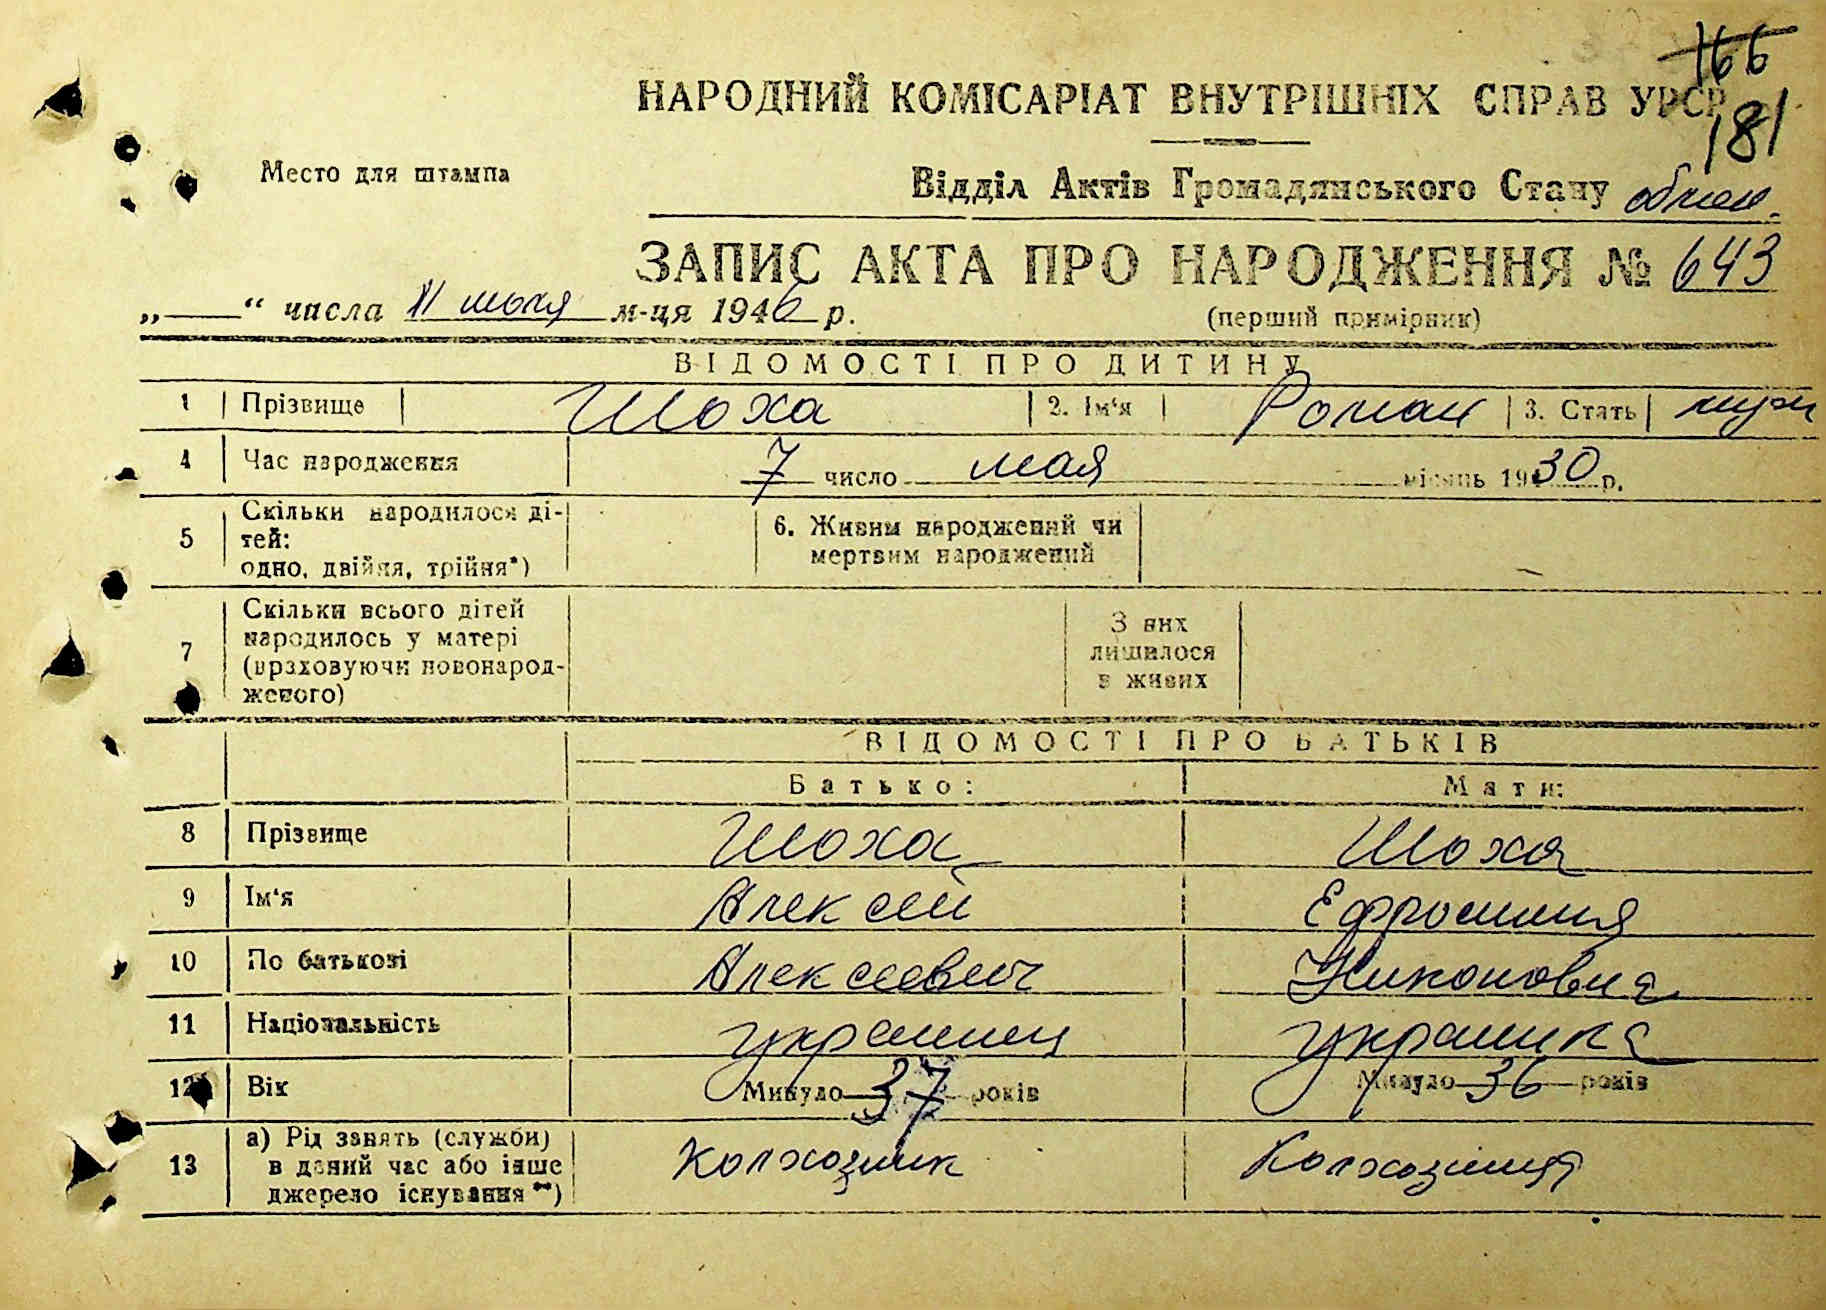 166
НАРОДНИЙ КОМІСАРІАТ ВНУТРІШНІХ СПРАВ УРСР
181
Место для штампа
Відділ Актів Громадянського Стану
ЗАПИС АКТА ПРО НАРОДЖЕННЯ № 643
„ “ числа 11 июля м-ця 1946 р.
(перший примірник)
ВІДОМОСТІ ПРО ДИТИНУ
1 Прізвище Шоха 2. Ім‘я Роман 3. Стать муж
4 Час народження 7 число мая місяць 1930 р.
5 Скільки народилося ді-
тей:
одно, двійня, трійня*)
6. Живим народжений чи
мертвим народжений
7 Скільки всього дітей
народилось у матері
(враховуючи новонарод-
женого)
З них
лишилося
в живих
ВІДОМОСТІ ПРО БАТЬКІВ
Батько: Мати:
8 Прізвище Шоха Шоха
9 Ім‘я Алексей Ефросиния
10 По батькові Алексеевич Никоновна
11 Національність украинец украинка
12 Вік Минуло 37 років Минуло 36 років
13 а) Рід занять (служби)
в даний час або інше
джерело існування **)
Колхозник Колхозница